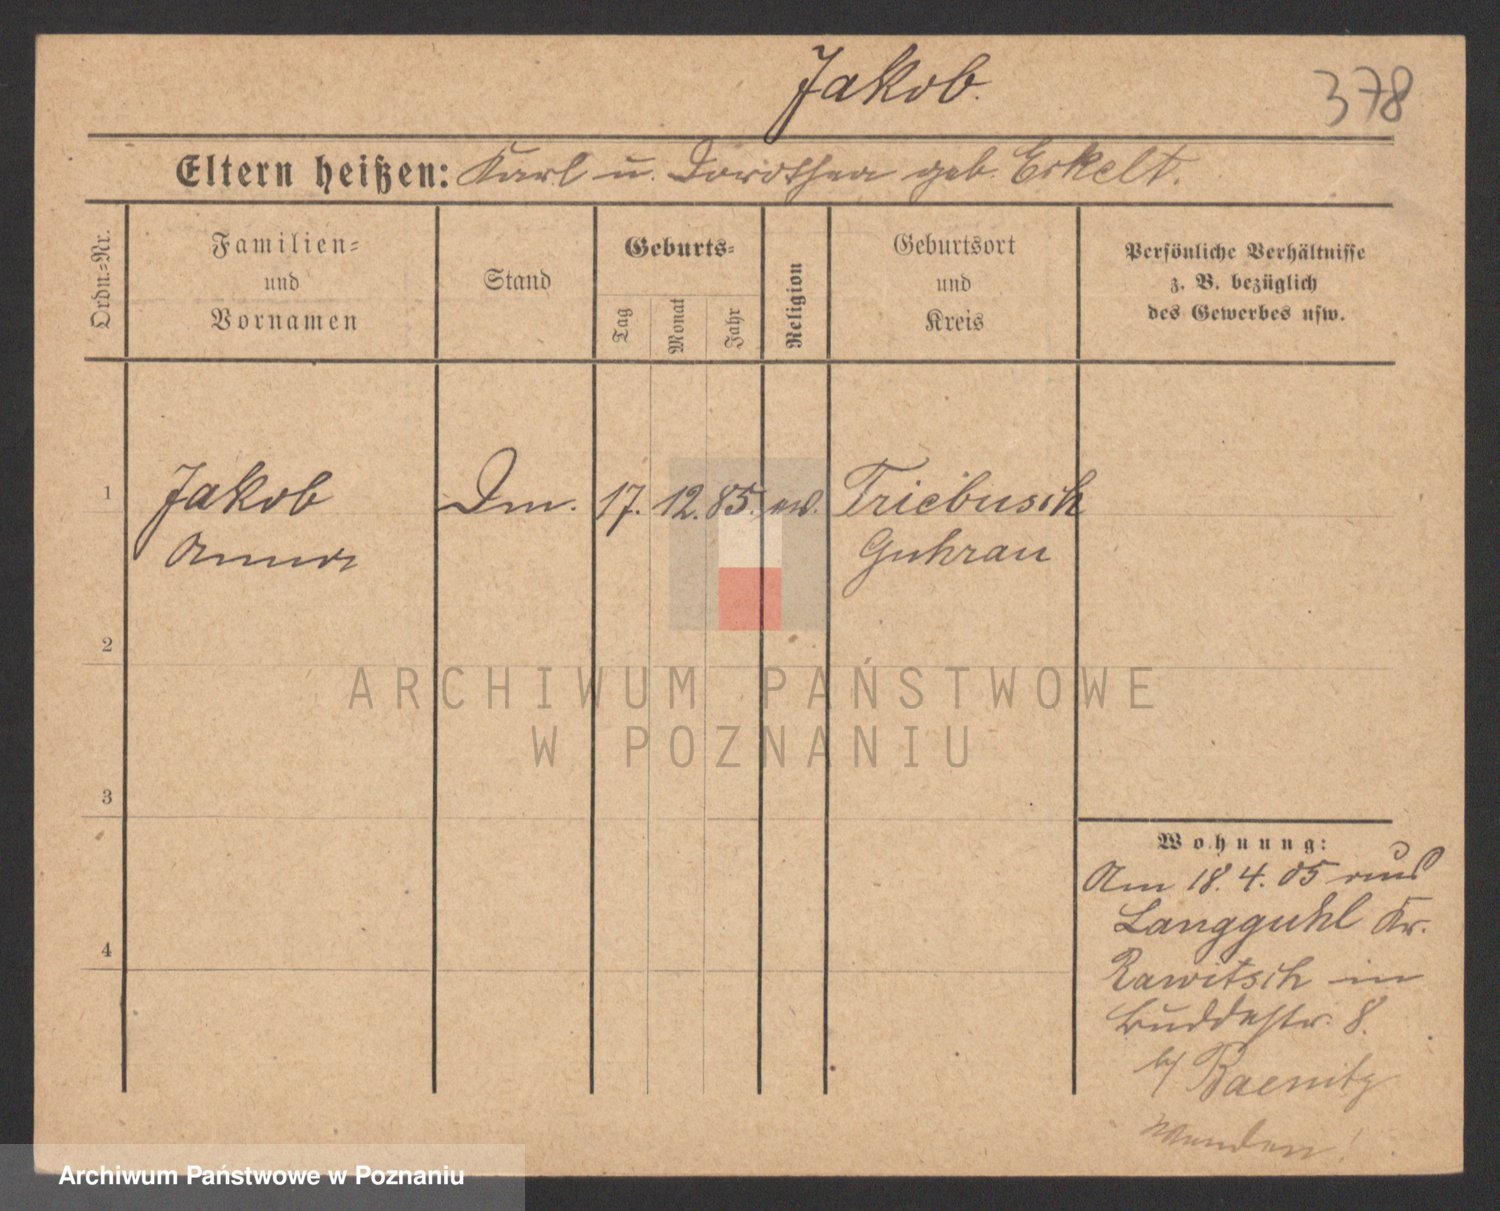 Jakob.
378
Eltern heißen: Karl u. Dorothea geb. Erkelt.
Ordn.=Nr.
Familien=
und
Vornamen
Stand
Geburts=
Tag
Monat
Jahr
Religion
Geburtsort
und
Kreis
Persönliche Verhältnisse
z. B. bezüglich
des Gewerbes usw.
1
Jakob
Anna
Dm.
17.
12.
85.
ev.
Triebusch
Guhrau
2
3
4
Wohnung:
Am 18. 4. 05 aus
Langguhl Kr.
Rawitsch in
Buddestr. 8.
b/ Baenitz
ARCHIWUM PAŃSTWOWE
W POZNANIU
Archiwum Państwowe w Poznaniu